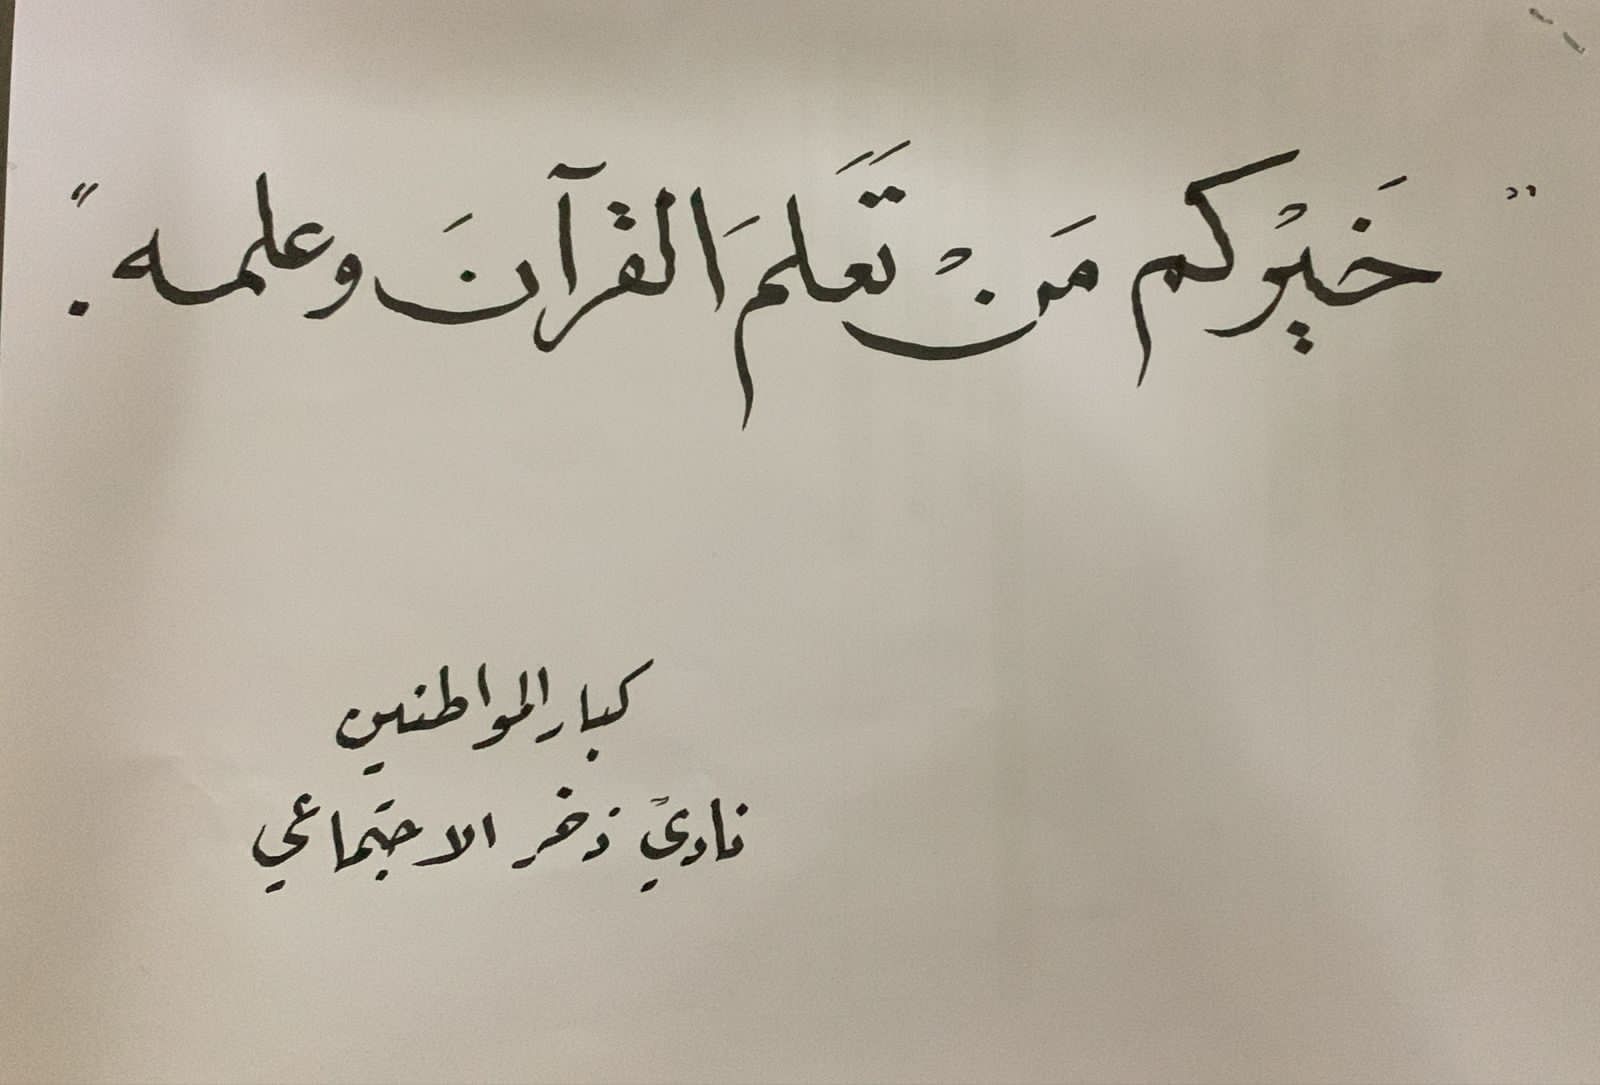 " خَيْركم مَنْ تَعَلمَ القرآنَ وعلمه ."
كبار المواطنين
نادي ذخر الاجتماعي